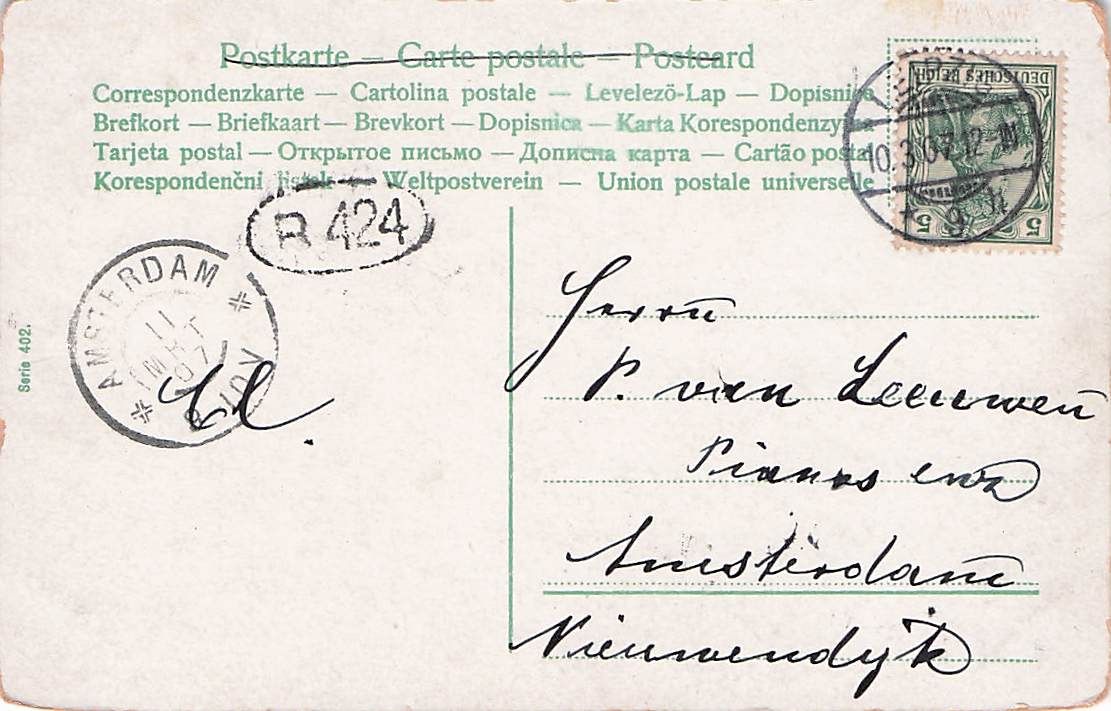 Postkarte — Carte postale — Postcard
Correspondenzkarte — Cartolina postale — Levelező-Lap — Dopisnice
Brefkort — Briefkaart — Brevkort — Dopisnica — Karta Korespondenzyjna
Tarjeta postal — Открытое письмо — Дописна карта — Cartão postal
Korespondenční listek — Weltpostverein — Union postale universelle
DEUTSCHES REICH
5 5
LEIPZIG
10.3.07.12
* 9
R 424
AMSTERDAM
11
MRT
07
Serie 402.
Herrn
P. van Leeuwen
Pianos enz
Amsterdam
Nieuwendijk